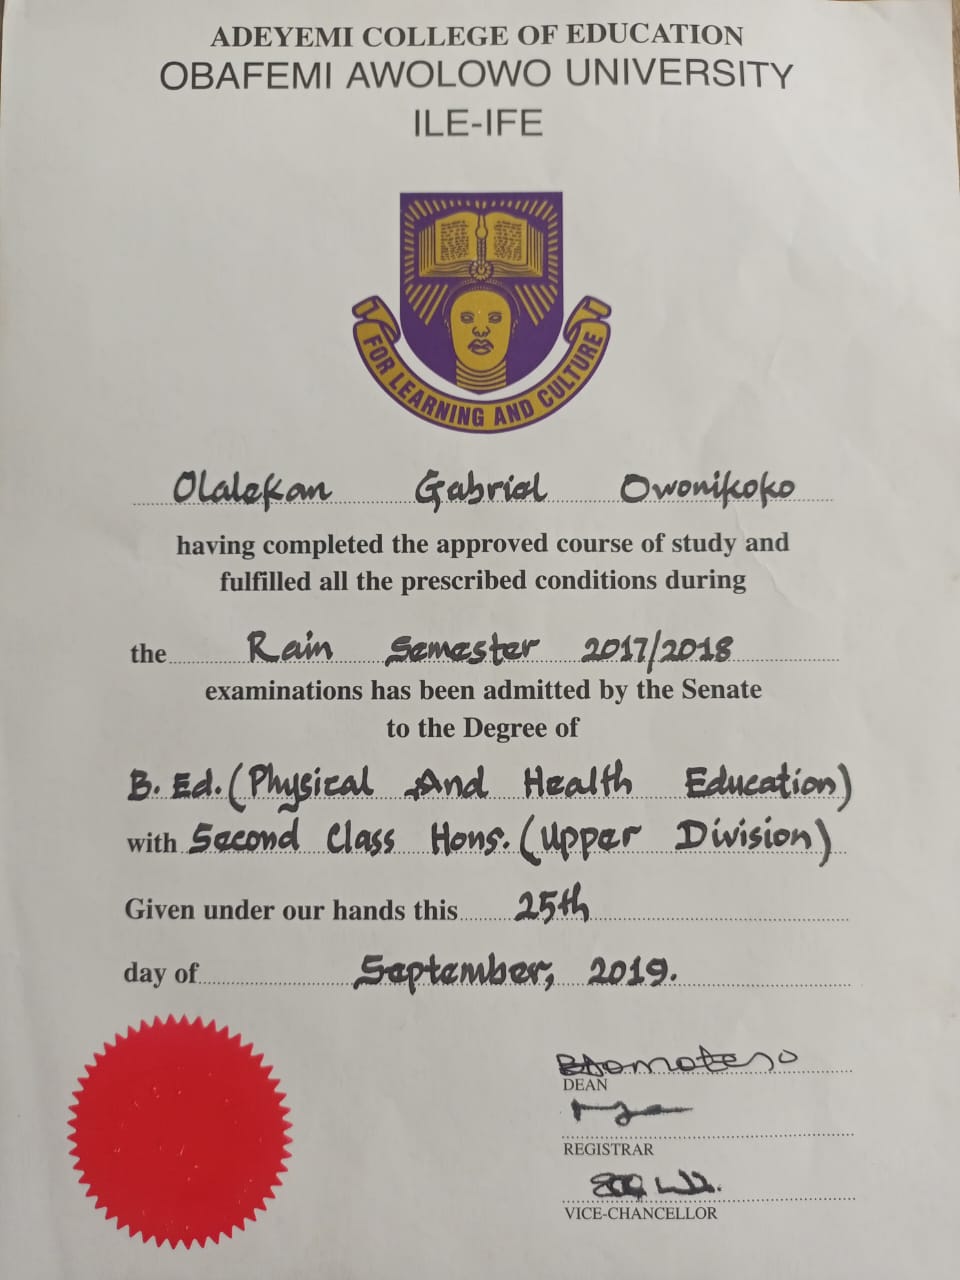 ADEYEMI COLLEGE OF EDUCATION
OBAFEMI AWOLOWO UNIVERSITY
ILE-IFE
FOR LEARNING AND CULTURE
Olalekan Gabriel Owonikoko
having completed the approved course of study and
fulfilled all the prescribed conditions during
the Rain Semester 2017/2018
examinations has been admitted by the Senate
to the Degree of
B. Ed. (Physical And Health Education)
with Second Class Hons. (Upper Division)
Given under our hands this 25th
day of September, 2019.
DEAN
REGISTRAR
VICE-CHANCELLOR